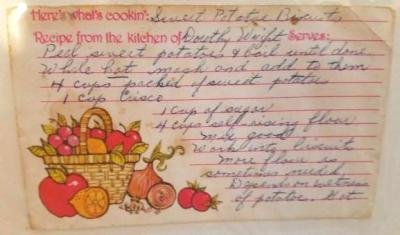 Here's what's cookin': Sweet Potatoe Biscuits
Recipe from the kitchen of Dorothy Wright Serves:
Peel sweet potatoes & boil until done.
While hot mash and add to them
4 cups packed of sweet potatoes
1 cup Crisco
1 cup of sugar
4 cups self-rising flour
Mix good
Work into biscuits
More flour is
sometimes needed,
Depends on wetness
of potatoe. Hot